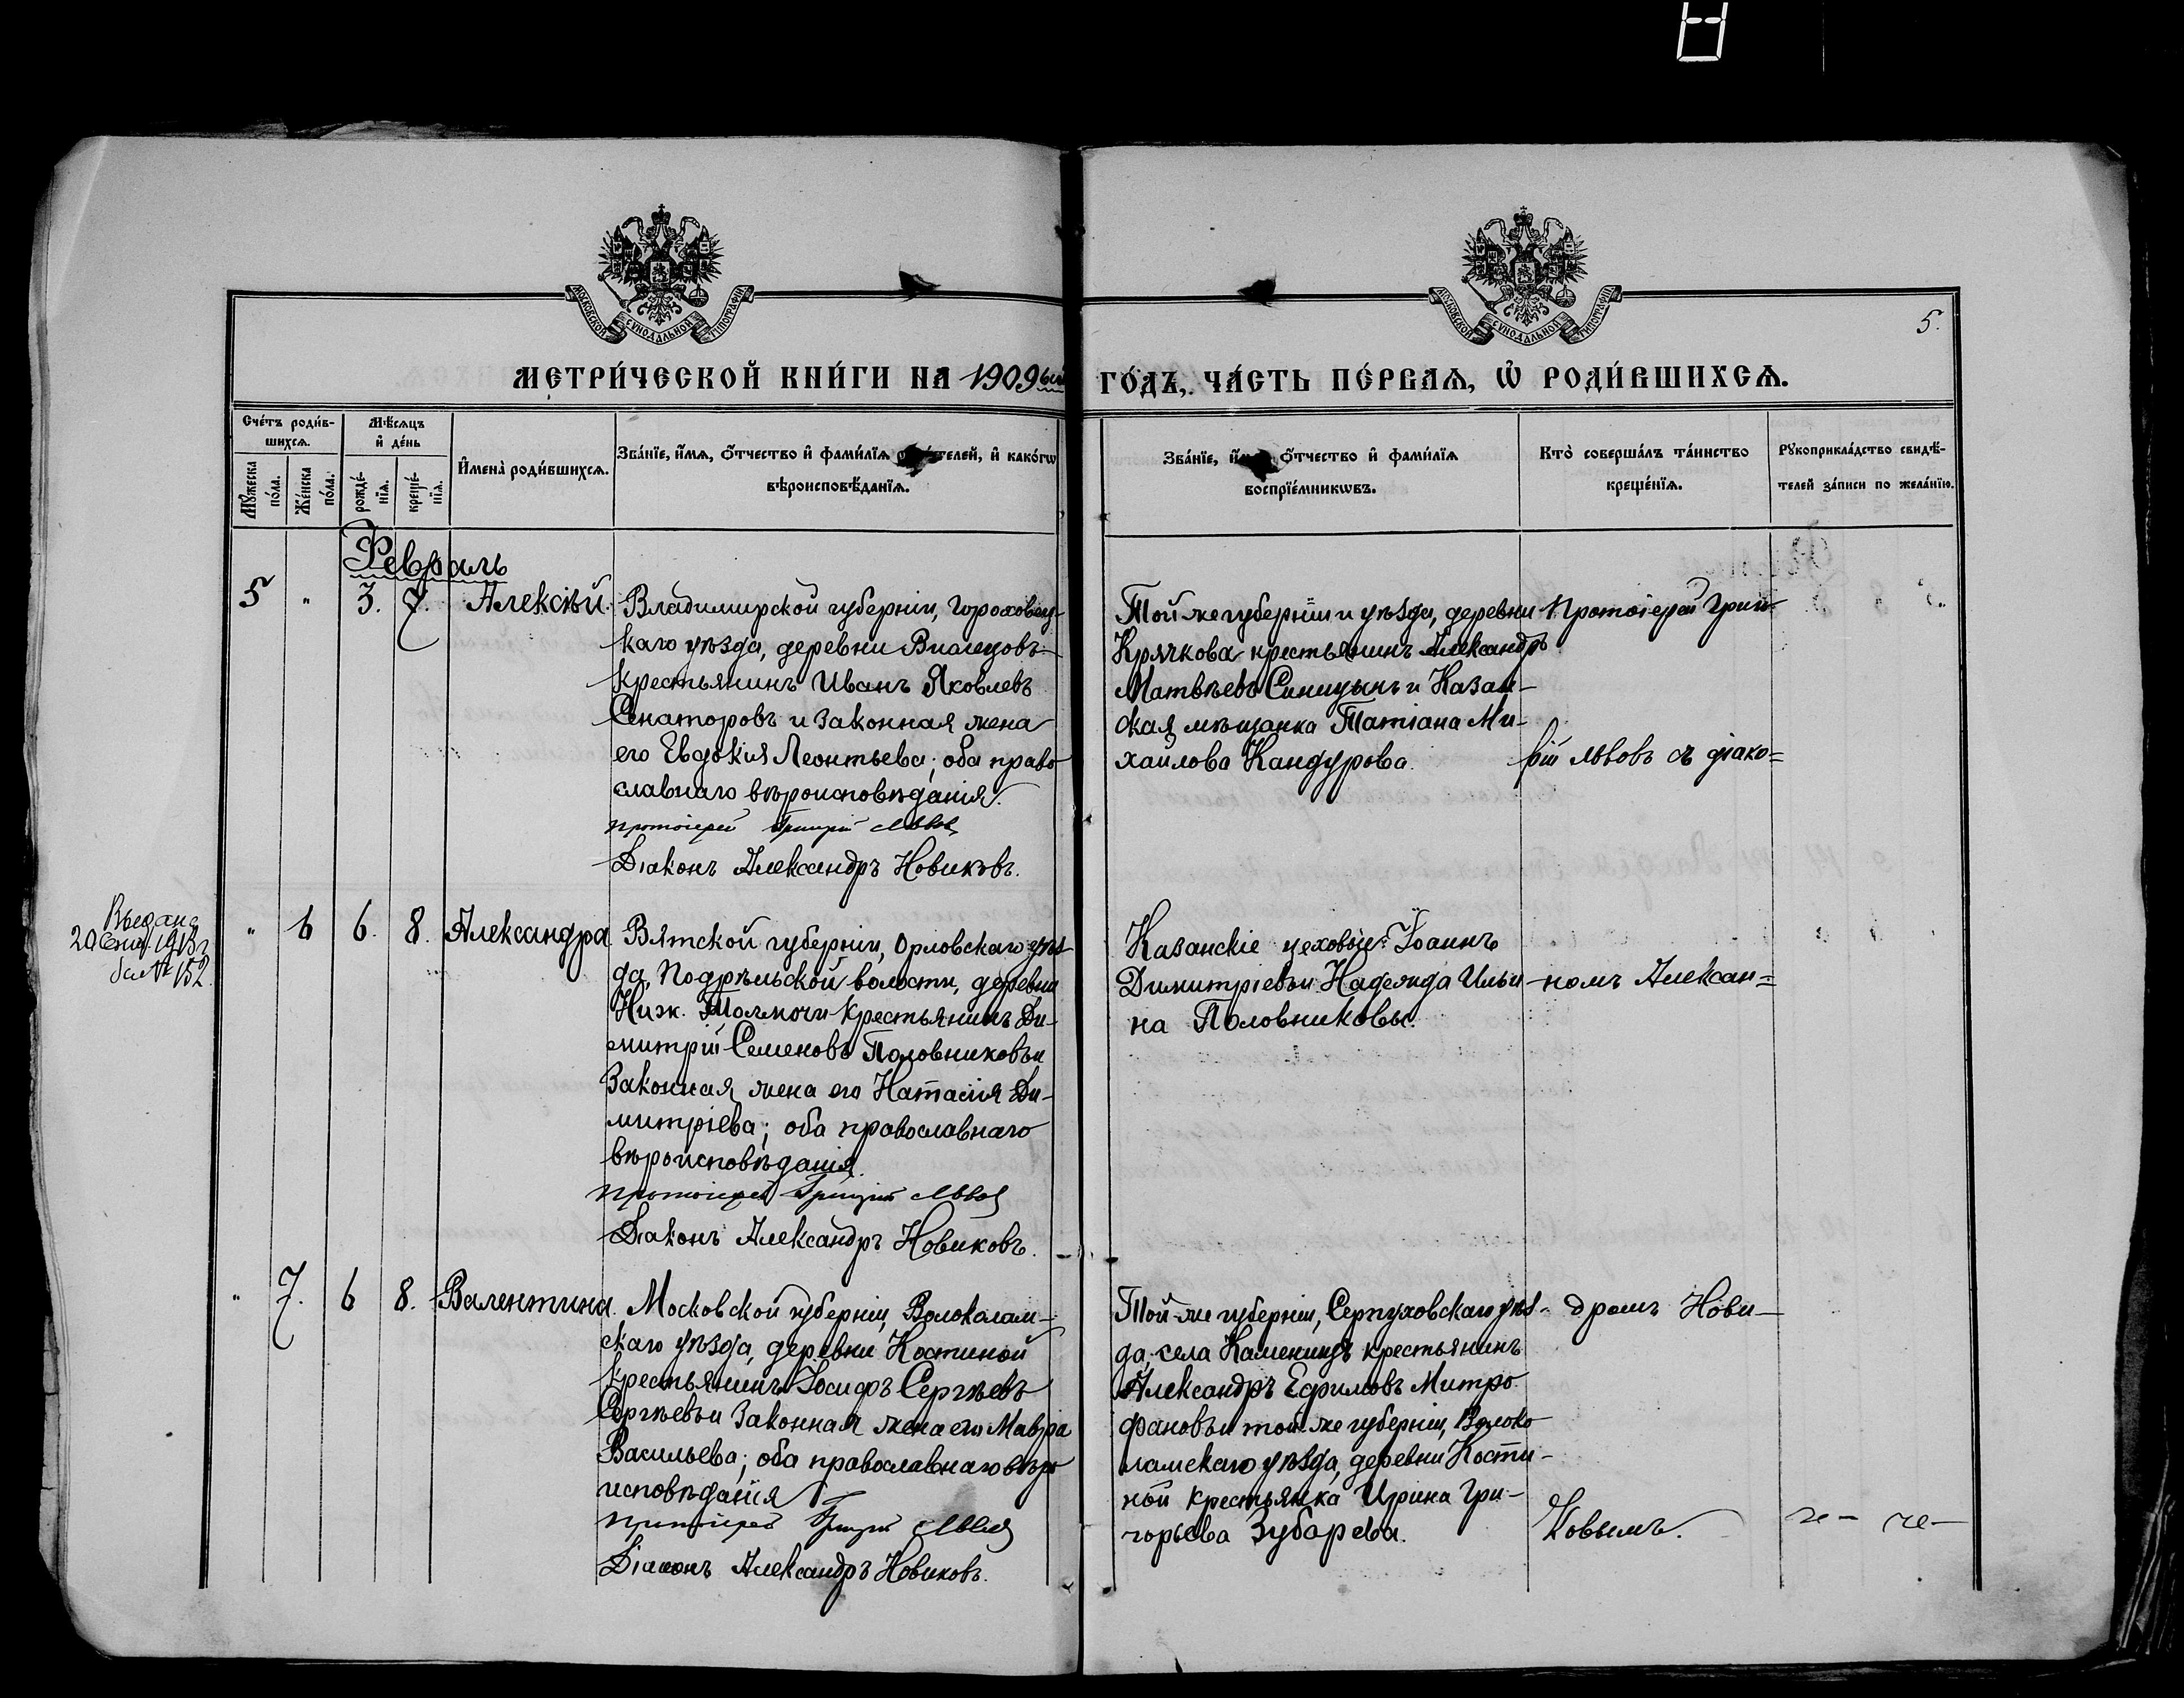 МОСКОВСКОЙ СУНОДАЛЬНОЙ ТИПОГРАФІИ
МОСКОВСКОЙ СУНОДАЛЬНОЙ ТИПОГРАФІИ
5.
МЕТРИ́ЧЕСКОЙ КНИ́ГИ НА 1909ый ГО́ДЪ, ЧА́СТЬ ПЕ́РВАѦ, Ѡ҆ РОДИ́ВШИХСѦ.
Сче́тъ роди́в-
шихсѧ.
Мѣ́сѧцъ
и҆ де́нь
Мꙋ́жеска
по́ла.
Же́нска
по́ла.
рожде́-
нїѧ.
креще́-
нїѧ.
И҆мена̀ роди́вшихсѧ.
Зва́нїе, и҆́мѧ, ѻ҆́тчество и҆ фами́лїѧ роди́телей, и҆ како́гѡ
вѣроисповѣ́данїѧ.
Зва́нїе, и҆́мѧ, ѻ҆́тчество и҆ фами́лїѧ
воспрїе́мникѡвъ.
Кто̀ соверша́лъ та́инство
креще́нїѧ.
Рꙋкоприкла́дство свидѣ́-
телей за́писи по жела́нїю.
Февраль
5 " 3. 7. Алексѣй.
Владимирской губерніи, Гороховец-
каго уѣзда, деревни
крестьянинъ Иванъ Яковлевъ
Сенаторовъ и законная жена
его Евдокия Леонтьева; оба право
славнаго вѣроисповѣданія.
Протоіерей Григорій Львовъ
Діаконъ Александръ Новиковъ.
Той же губерніи и уѣзда, деревни
Крячкова крестьянинъ Александръ
Матвѣевъ Синицынъ и Казан-
ская мѣщанка Татіана Ми-
хайлова Кандурова.
Протоіерей Григо-
рій Львовъ съ діако=
Выдана
20 Сент. 1913 г.
за № 152.
" 6 6. 8. Александра.
Вятской губерніи, Орловскаго уѣз-
да, Подрѣльской волости, деревни
Ниж. крестьянинъ Ди-
митрій Семеновъ Половниковъ и
законная жена его Наталія Ди-
митріева; оба православнаго
вѣроисповѣданія.
Протоіерей Григорій Львовъ
Діаконъ Александръ Новиковъ.
Казанскіе цеховые: Іоаннъ
Димитріевъ и Надежда Ильи
на Половниковы.
номъ Алексан=
" 7. 6 8. Валентина.
Московской губерніи, Волоколам-
скаго уѣзда, деревни Костиной
крестьянинъ Іосифъ Сергѣевъ
Сергѣевъ и законная жена его Мавра
Васильева; оба православнаго вѣро
исповѣданія
Протоіерей Григорій Львовъ
Діаконъ Александръ Новиковъ.
Той-же губерніи, Серпуховскаго уѣз-
да, села крестьянинъ
Александръ Ефимовъ Митро
фановъ и той-же губерніи, Волоко
ламскаго уѣзда, деревни Кости-
ной крестьянка Ирина Гри-
горьева Зубарева.
дромъ Нови-
ковымъ.